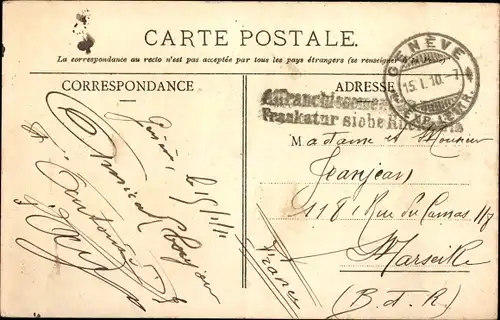 CARTE POSTALE.
La correspondance au recto n'est pas acceptée par tous les pays étrangers (se renseigner à la Poste)
CORRESPONDANCE
ADRESSE
GENÈVE
15.I.10.-7
EXP. LETTR.
Affranchissement
Frankatur siehe Rückseite
Madame et Monsieur
Jeanjean
118 Rue du Camas 118
Marseille
(B. d. R)
France
Genève, 15/1/10
Amical